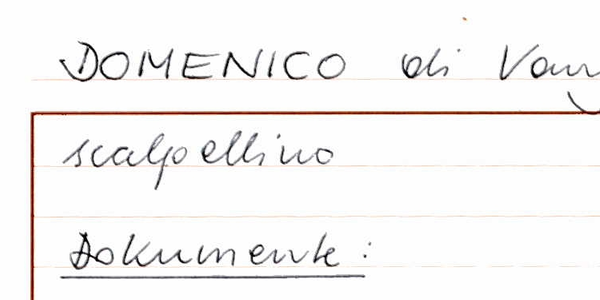 DOMENICO di
scalpellino
Dokumente: